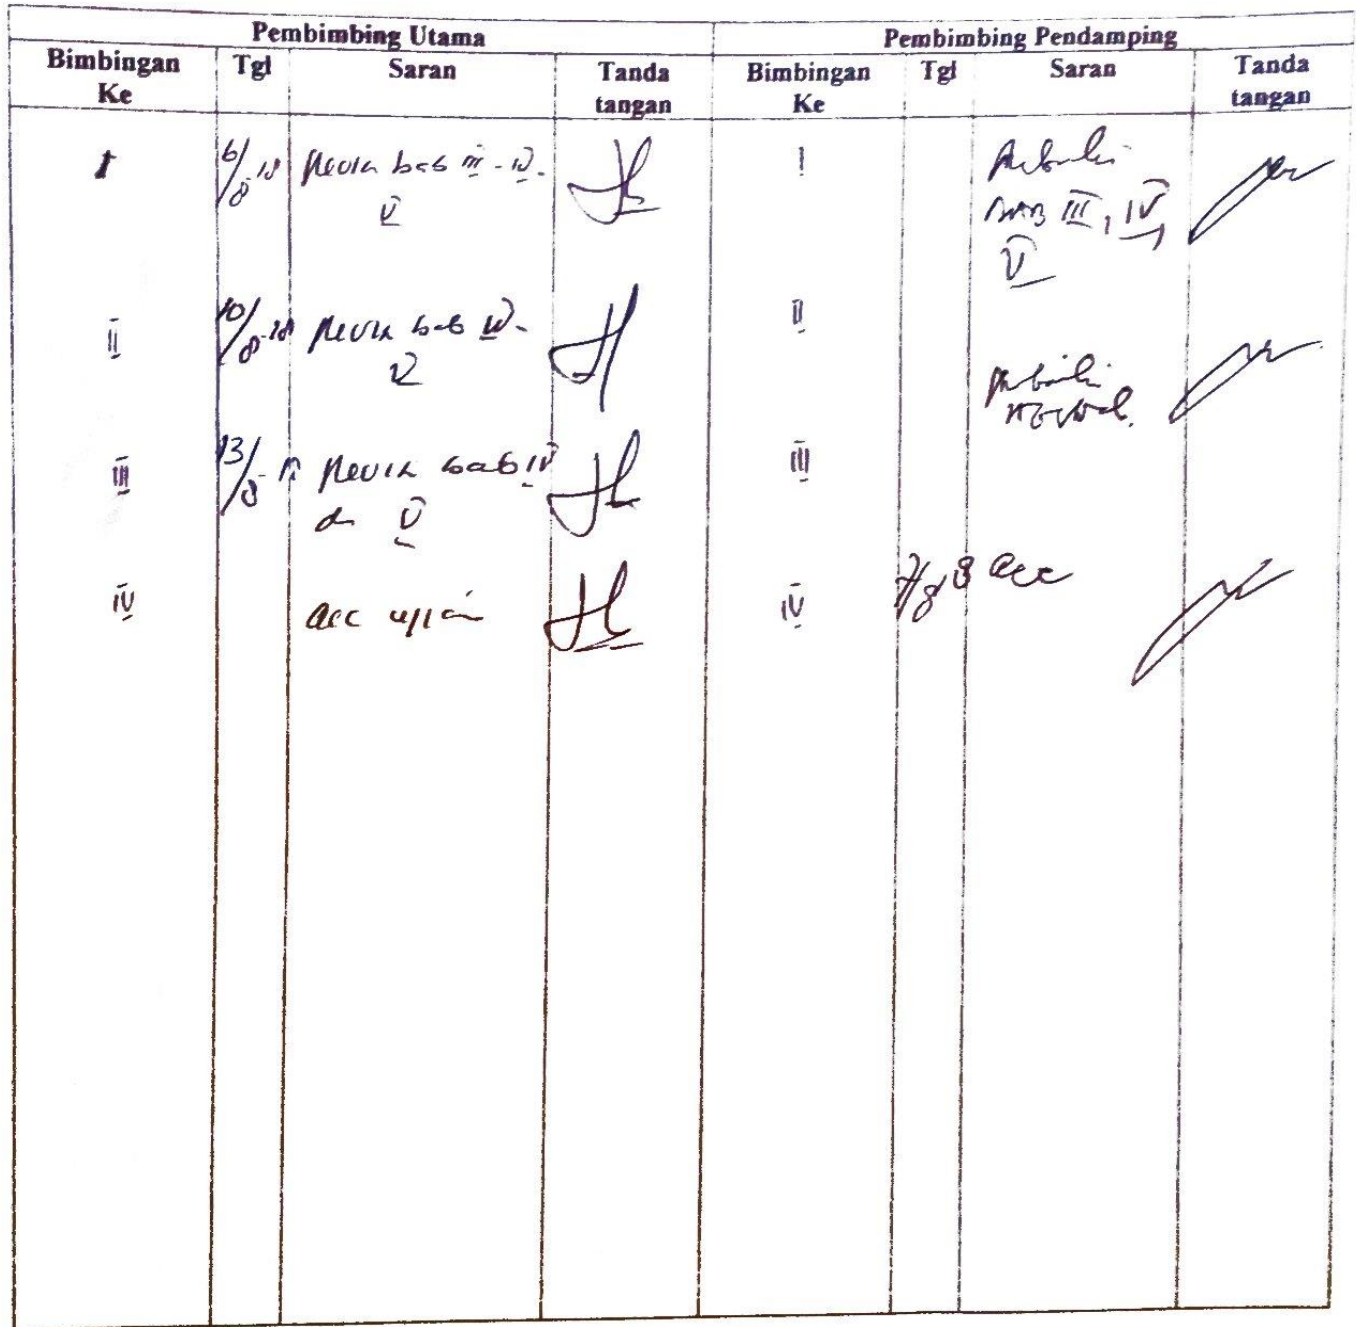 Pembimbing Utama Pembimbing Pendamping
Bimbingan Ke Tgl Saran Tanda tangan Bimbingan Ke Tgl Saran Tanda tangan
I 6/8-18 Revisi bab III - IV - I
V BAB III, IV,
V
II 10/8-18 Revisi bab IV - II
V
III 13/8 Revisi bab IV III
V
IV acc ujian IV acc